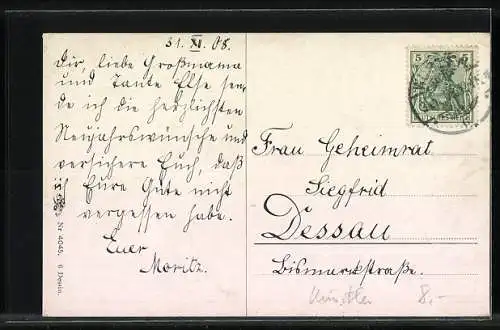 31. XI. 08.
Dir, liebe Großmama
und Tante Else sen-
de ich die herzlichsten
Neujahrswünsche und
versichere Euch, daß
ich Eure Güte nicht
vergessen habe.
Euer
Moritz.
Frau Geheimrat
Siegfrid
Dessau
Bismarckstraße.
Nr 4045, 6 Dessin.
5
5
Künstler 8,-